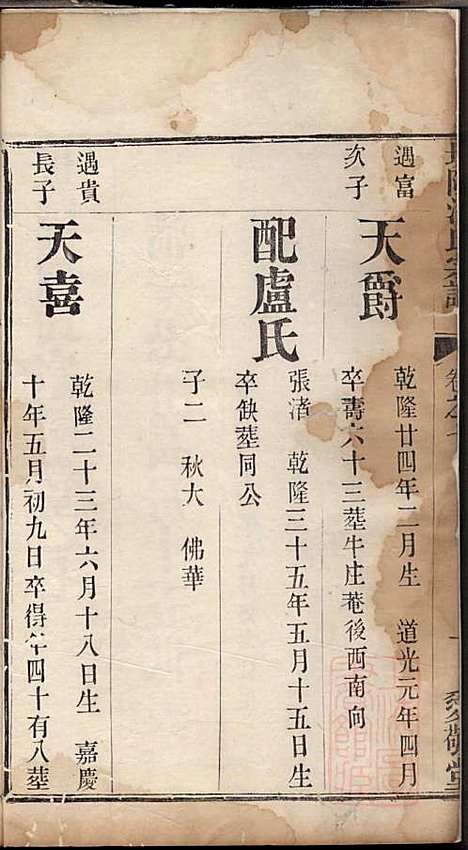 卷之
敬堂
遇富
次子
天爵
乾隆廿四年二月生 道光元年四月
卒壽六十三塟牛庄菴後西南向
配盧氏
張渚 乾隆三十五年五月十五日生
卒缺塟同公
子二 秋大 佛華
遇貴
長子
天喜
乾隆二十三年六月十八日生 嘉慶
十年五月初九日卒得年四十有八塟